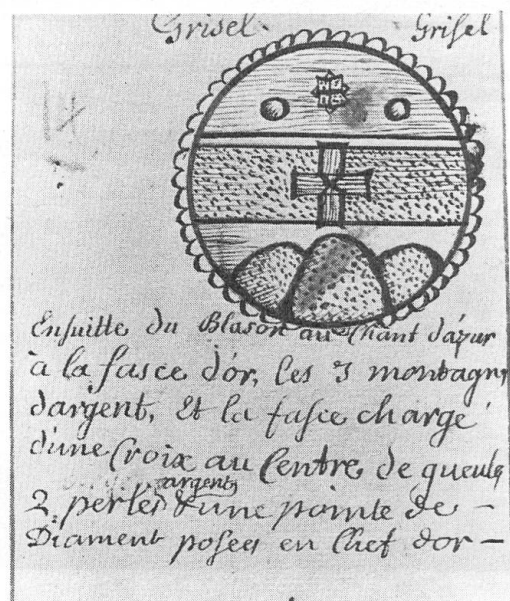 Grisel. Grisel
Ensuitte du Blason au Chant d'azur
à la fasce d'ór, les 3 montagns
d'argent, Et la fasce chargé
d'une Croix au Centre de gueuls
argent
2 perles & une pointe de -
Diament posées en Chef d'or -